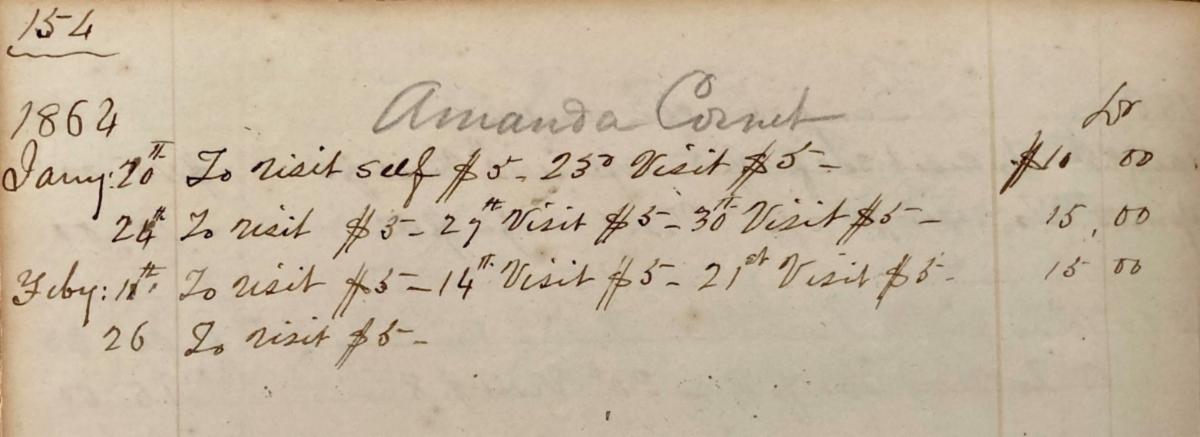 154
1864
Amanda Cornet
Dr
Jany: 20th To visit self $5 - 23d Visit $5 - $10 00
24th To visit $5 - 27th Visit $5 - 30th Visit $5 - 15,00
Feby: 11th To visit $5 - 14th Visit $5 - 21st Visit $5 - 15 00
26 To visit $5 -